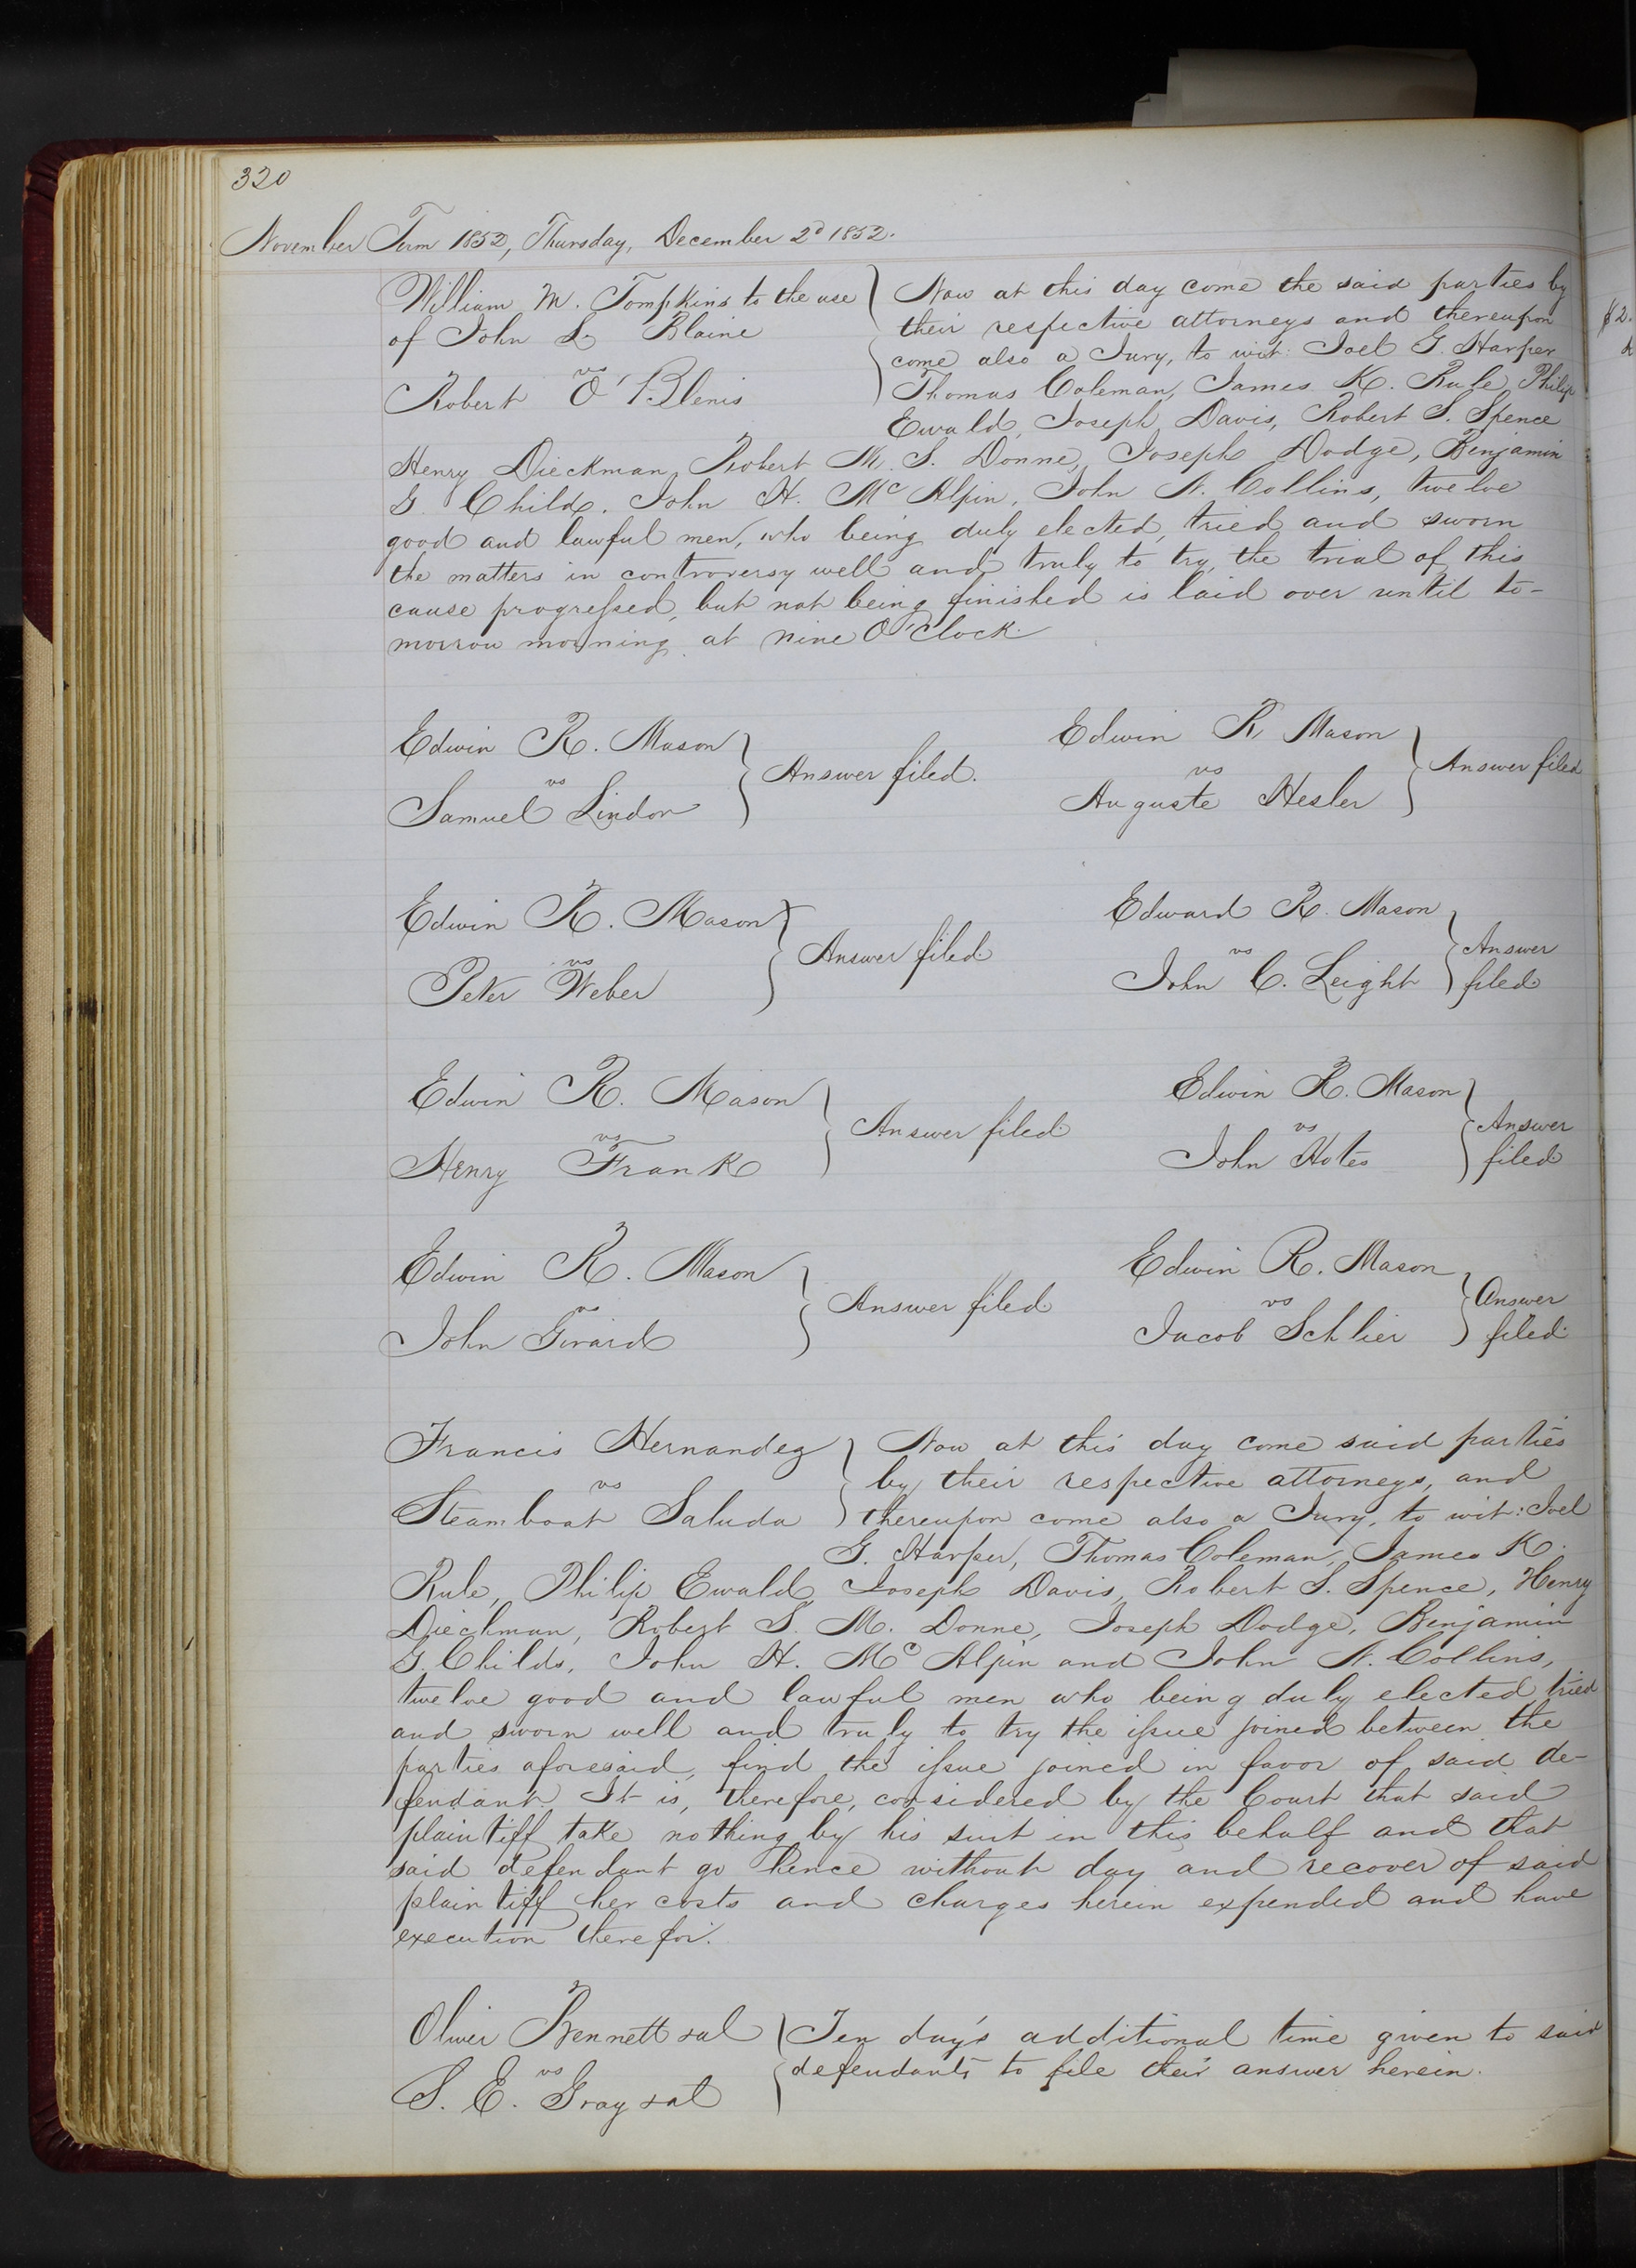 320
November Term 1852, Thursday, December 2d 1852.
William M. Tompkins to the use
of John L. Blaine
vs
Robert O'Blenis
Now at this day come the said parties by
their respective attorneys and thereupon
come also a Jury, to wit: Joel G. Harper
Thomas Coleman, James K. Rule, Philip
Ewald, Joseph Davis, Robert S. Spence
Henry Dieckman, Robert M. S. Donne, Joseph Dodge, Benjamin
G. Childs, John H. McAlpin, John A. Collins, twelve
good and lawful men, who being duly elected, tried and sworn
the matters in controversy well and truly to try, the trial of this
cause progressed, but not being finished is laid over until to-
morrow morning at nine O'Clock.
Edwin R. Mason
vs
Samuel Lindon
Answer filed.
Edwin R Mason
vs
Auguste Hesler
Answer filed
Edwin R. Mason
vs
Peter Weber
Answer filed.
Edward R. Mason
vs
John C. Leight
Answer
filed
Edwin R. Mason
vs
Henry Frank
Answer filed.
Edwin R. Mason
vs
John Hotes
Answer
filed
Edwin R. Mason
vs
John Girard
Answer filed
Edwin R. Mason
vs
Jacob Schlier
Answer
filed.
Francis Hernandez
vs
Steamboat Saluda
Now at this day come said parties
by their respective attorneys, and
thereupon come also a Jury, to wit: Joel
G. Harper, Thomas Coleman, James K.
Rule, Philip Ewald, Joseph Davis, Robert S. Spence, Henry
Dieckman, Robert S. M. Donne, Joseph Dodge, Benjamin
G. Childs, John H. McAlpin and John A. Collins,
twelve good and lawful men who being duly elected tried
and sworn well and truly to try the issue joined between the
parties aforesaid, find the issue joined in favor of said de-
fendant. It is, therefore, considered by the Court that said
plaintiff take nothing by his suit in this behalf and that
said defendant go hence without day and recover of said
plaintiff her costs and charges herein expended and have
execution therefor.
Oliver Bennett & al
vs
S. E. Gray & al
Ten day's additional time given to said
defendants to file their answer herein.